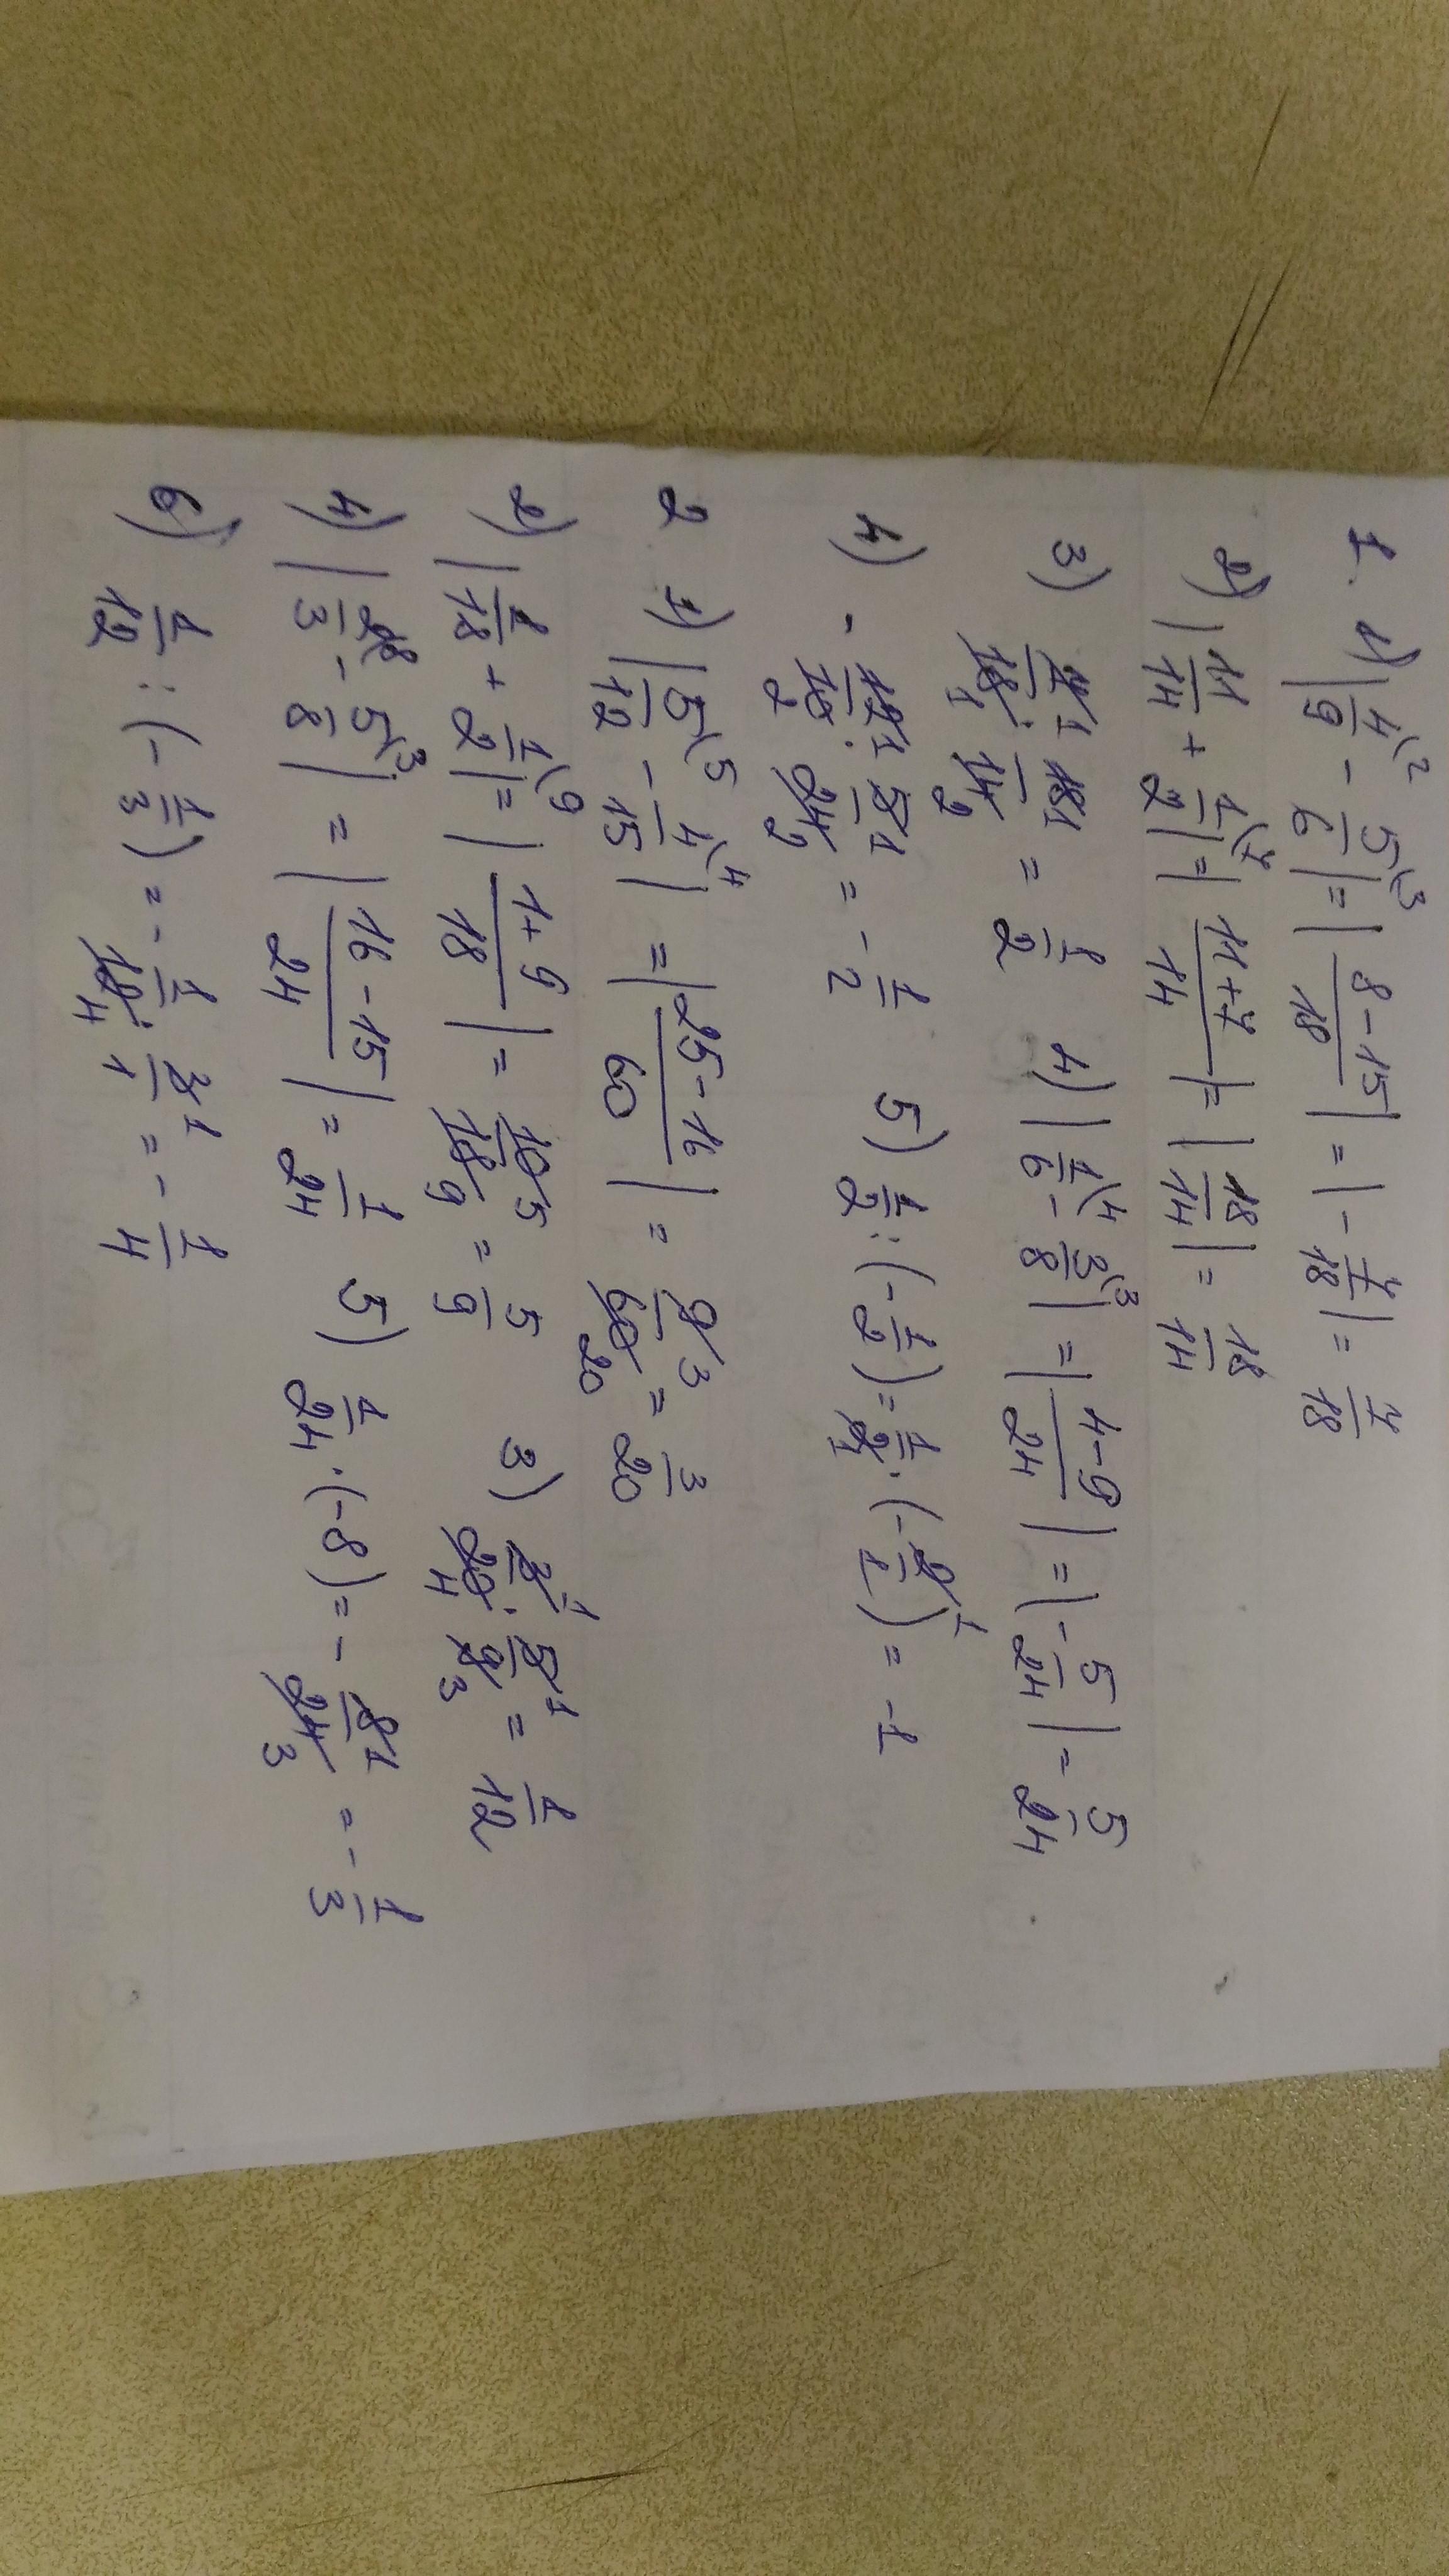 1. 1) |4/9\2 - 5/6\3| = |8-15/18| = |-7/18| = 7/18
2) |11/14 + 1/2\7| = |11+7/14| = |18/14| = 18/14
3) 7 1/18 1 · 18 1/14 2 = 1/2 4) |1/6\4 - 3/8\3| = |4-9/24| = |-5/24| = 5/24
4) - 12 1/10 2 · 5 1/24 2 = - 1/2 5) 1/2 : (-1/2) = 1/2 1 · (-2 1/1) = -1
2 1) |5/12\5 - 4/15\4| = |25-16/60| = 9 3/60 20 = 3/20
2) |1/18 + 1/2\9| = |1+9/18| = 10 5/18 9 = 5/9 3) 3 1/20 4 · 5 1/9 3 = 1/12
4) |2\8/3 - 5/8\3| = |16-15/24| = 1/24 5) 1/24 · (-8) = - 8 1/24 3 = - 1/3
6) 1/12 : (-1/3) = - 1/12 4 · 3 1/1 = - 1/4